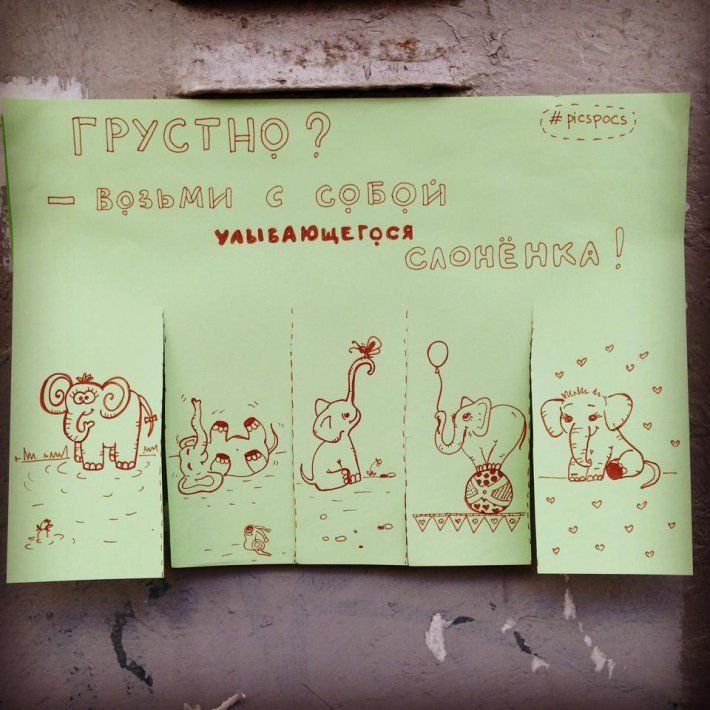 ГРУСТНО?
#picspocs
– ВОЗЬМИ С СОБОЙ
УЛЫБАЮЩЕГОСЯ
СЛОНЁНКА!